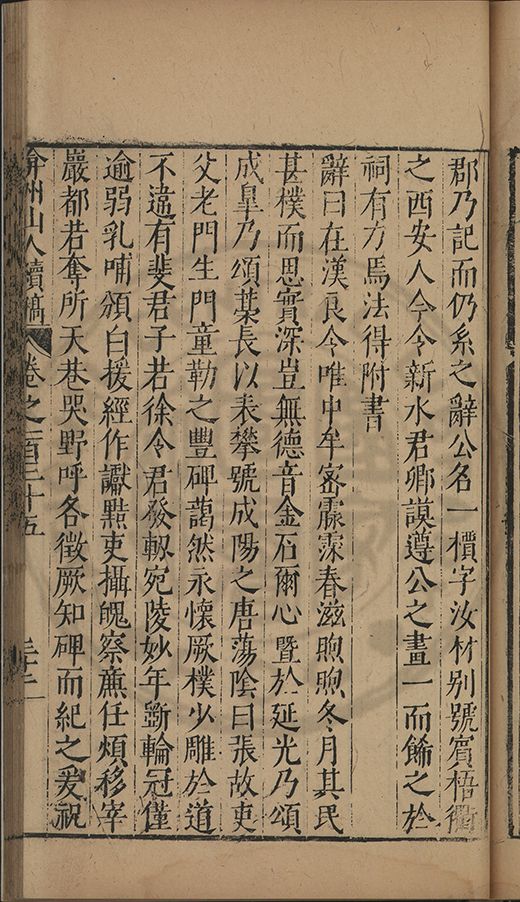 郡乃記而仍系之辭公名一檟字汝材別號賓梧衢
之西安人今令新水君卿謨遵公之畫一而餙之於
祠有方焉法得附書
辭曰在漢良令唯中牟宻霢霂春滋煦煦冬月其民
甚樸而思實深豈無德音金石爾心暨於延光乃頌
成皐乃頌蒸長以表攀號成陽之唐蕩陰曰張故吏
父老門生門童勒之豐碑藹然永懷厥樸少雕於道
不違有斐君子若徐令君發軔宛陵妙年斲輪冠僅
逾弱乳哺頒白援經作讞㸃吏攝魄察亷任煩移宰
嚴都若奪所天巷哭野呼各徵厥知碑而紀之爰祝
弇州山人續稿 卷之一百三十五 三十二